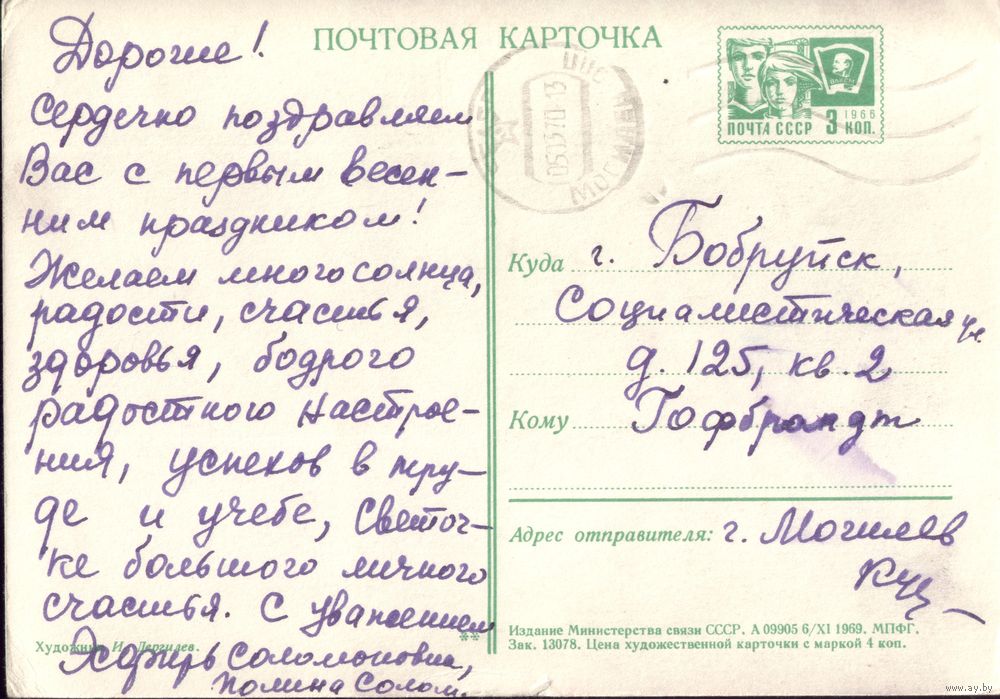 Дорогие!
Сердечно поздравляем
Вас с первым весен-
ним праздником!
Желаем много солнца,
радости, счастья,
здоровья, бодрого
радостного настрое-
ния, успехов в тру-
де и учебе, Светоч-
ке большого личного
счастья. С уважением
Эсфирь Соломоновна,
Полина Солом.
Художник И. Дергилев.
ПОЧТОВАЯ КАРТОЧКА
ВЛКСМ
1966
ПОЧТА СССР 3 КОП.
МОГИЛЕВ
Куда г. Бобруйск,
Социалистическая ул.
д. 125, кв. 2
Кому Гофбрандт
Адрес отправителя: г. Могилев
**
Издание Министерства связи СССР. А 09905 6/XI 1969. МПФГ.
Зак. 13078. Цена художественной карточки с маркой 4 коп.
www.ay.by